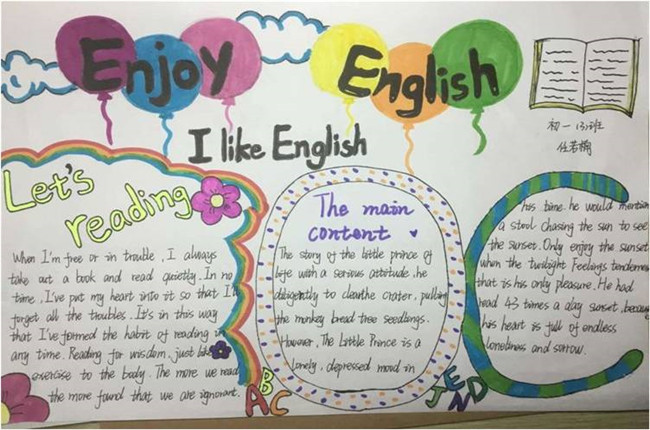 Enjoy English
I like English
初一13班
Let's
reading
When I'm free or in trouble, I always
take out a book and read quietly. In no
time, I've put my heart into it so that I
forget all the troubles. It's in this way
that I've formed the habit of reading in
any time. Reading for wisdom, just like
exercise to the body. The more we read
the more found that we are ignorant.
ABC
The main
content
The story of the little prince of
life with a serious attitude, he
diligently to clean the crater, pulling
the monkey bread tree seedlings.
However, The Little Prince is a
lonely, depressed mord in
his time. he would mention
a stool chasing the sun to see
the sunset. Only enjoy the sunset
when the twilight Feelings tenderness
that is his only pleasure. He had
read 43 times a day sunset, because
his heart is full of endless
loneliness and sorrow.
END